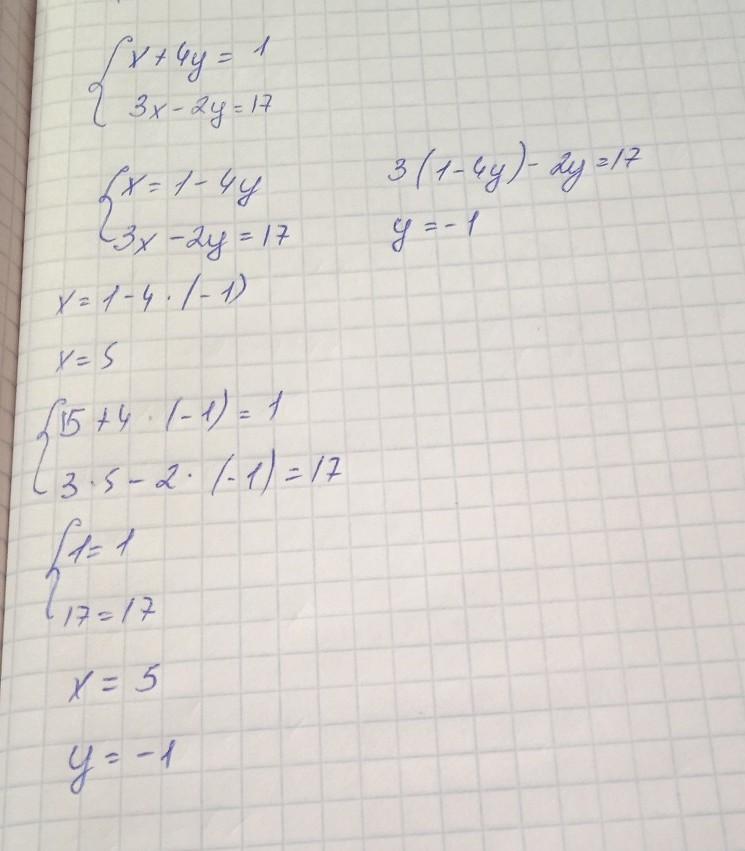 x + 4y = 1
3x - 2y = 17
x = 1 - 4y
3x - 2y = 17
3(1 - 4y) - 2y = 17
y = -1
x = 1 - 4 · (-1)
x = 5
5 + 4 · (-1) = 1
3 · 5 - 2 · (-1) = 17
1 = 1
17 = 17
x = 5
y = -1